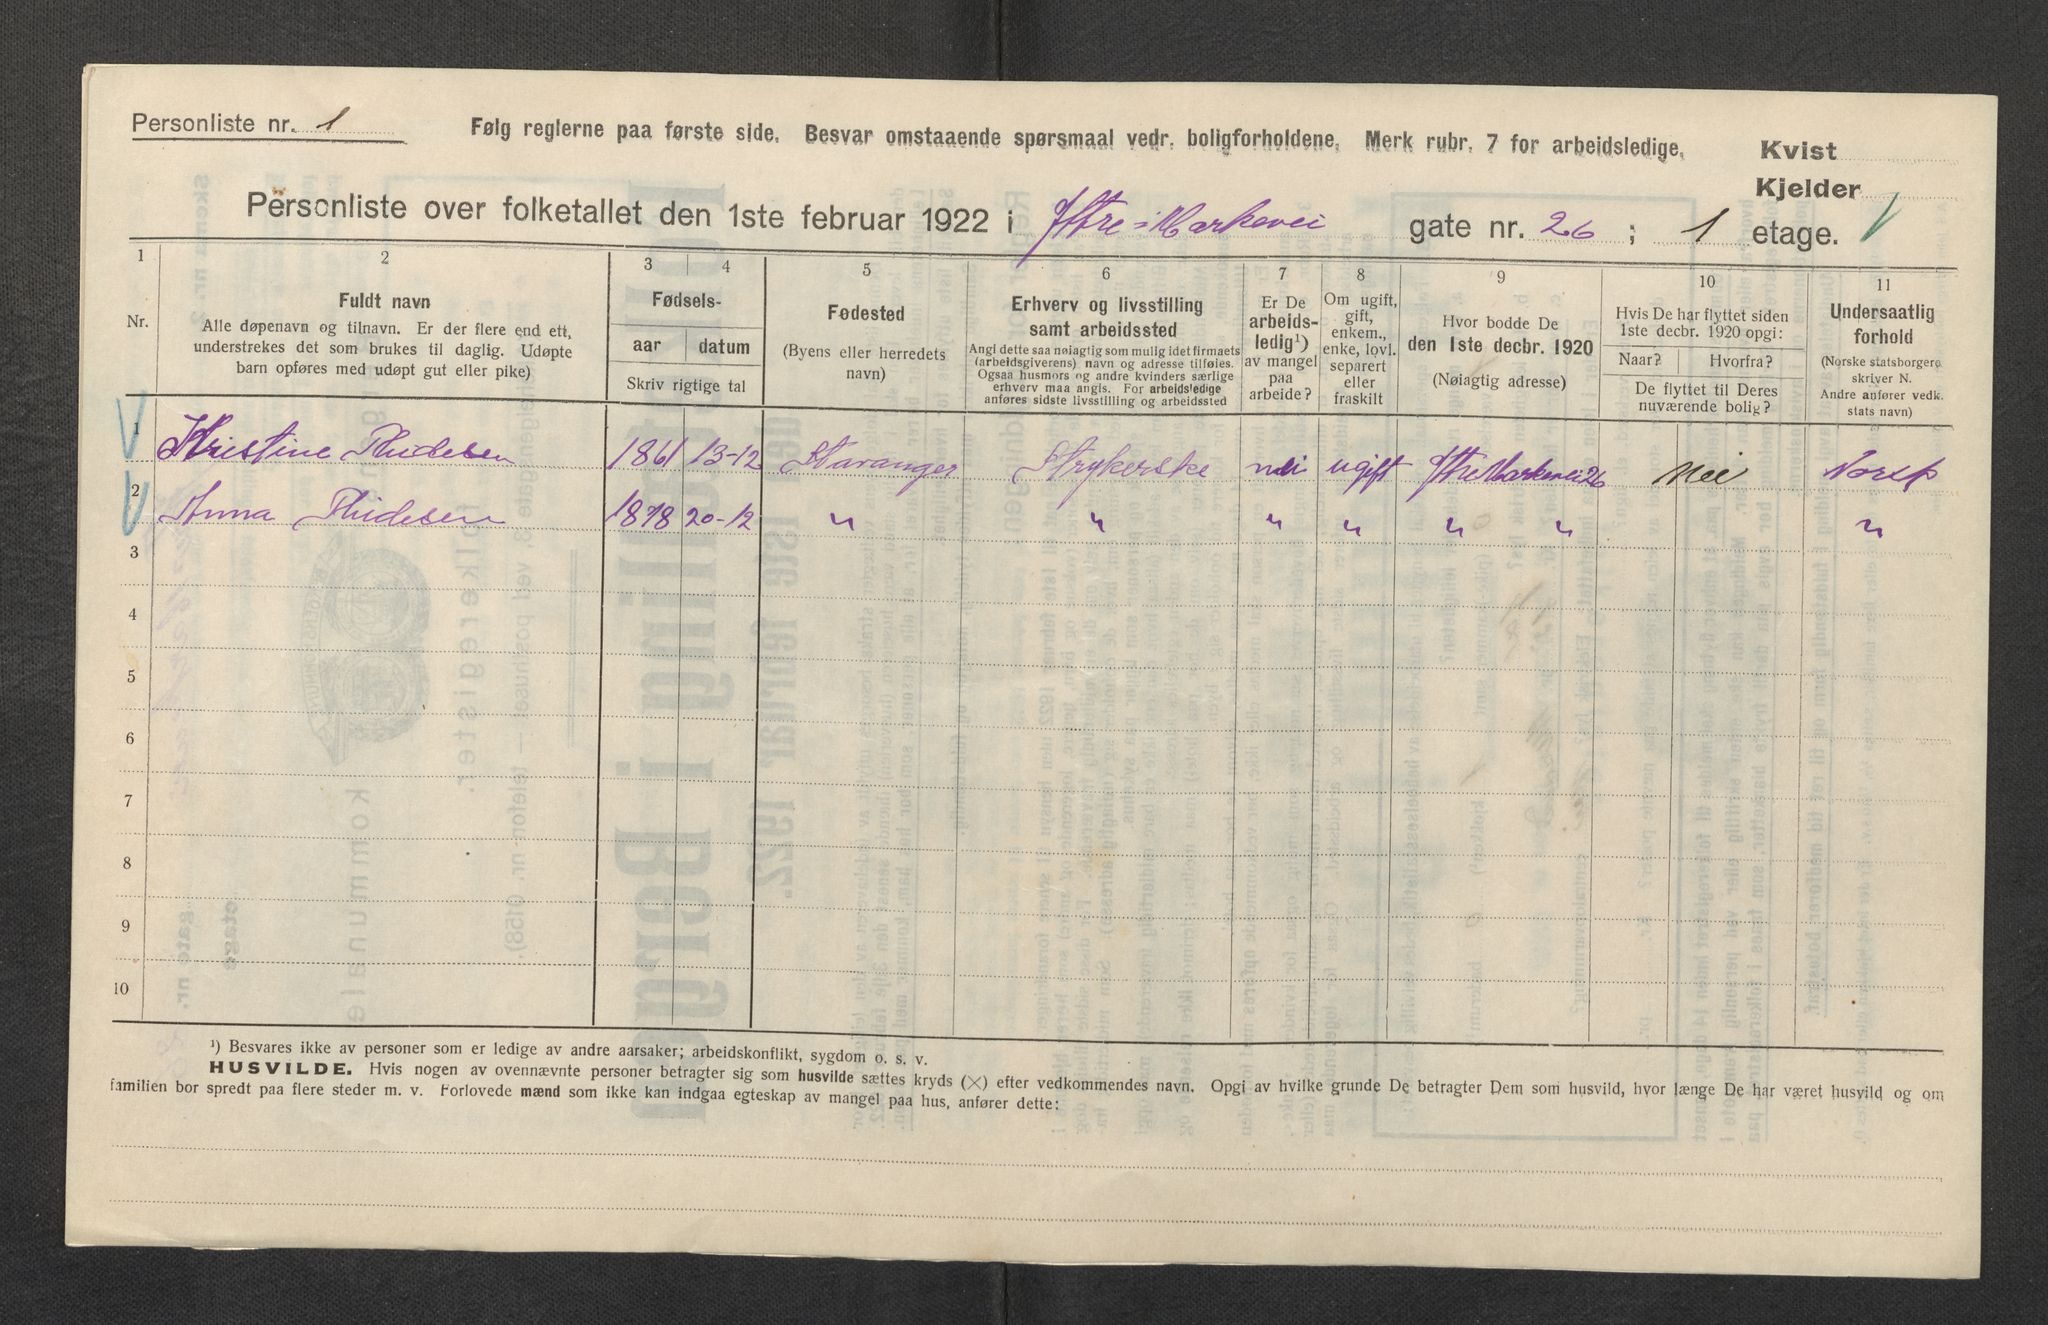 Personliste nr. 1
Følg reglerne paa første side. Besvar omstaaende spørsmaal vedr. boligforholdene. Merk rubr. 7 for arbeidsledige.
Kvist
Kjelder
Personliste over folketallet den 1ste februar 1922 i Ytre Markevei gate nr. 26 ; 1 etage.
1 2 3 4 5 6 7 8 9 10 11
Nr.
Fuldt navn
Alle døpenavn og tilnavn. Er der flere end ett, understrekes det som brukes til daglig. Udøpte barn opføres med udøpt gut eller pike)
Fødsels-
aar datum
Skriv rigtige tal
Fødested
(Byens eller herredets navn)
Erhverv og livsstilling
samt arbeidssted
Angi dette saa nøiagtig som mulig idet firmaets (arbeidsgiverens) navn og adresse tilføies. Ogsaa husmors og andre kvinders særlige erhverv maa angis. For arbeidsledige anføres sidste livsstilling og arbeidssted
Er De arbeids-ledig¹) av mangel paa arbeide?
Om ugift, gift, enkem., enke, lovl. separert eller fraskilt
Hvor bodde De
den 1ste decbr. 1920
(Nøiagtig adresse)
Hvis De har flyttet siden 1ste decbr. 1920 opgi:
Naar? Hvorfra?
De flyttet til Deres nuværende bolig?
Undersaatlig forhold
(Norske statsborgere skriver N. Andre anfører vedk. stats navn)
1 Kristine Thidesen 1861 13-12 Stavanger Strykerske nei ugift Ytre Markevei 26 Nei Norsk
2 Anna Thidesen 1878 20-12 " " " " " " "
3
4
5
6
7
8
9
10
¹) Besvares ikke av personer som er ledige av andre aarsaker; arbeidskonflikt, sygdom o. s. v.
HUSVILDE. Hvis nogen av ovennævnte personer betragter sig som husvilde sættes kryds (×) efter vedkommendes navn. Opgi av hvilke grunde De betragter Dem som husvild, hvor længe De har været husvild og om
familien bor spredt paa flere steder m. v. Forlovede mænd som ikke kan indgaa egteskap av mangel paa hus, anfører dette: